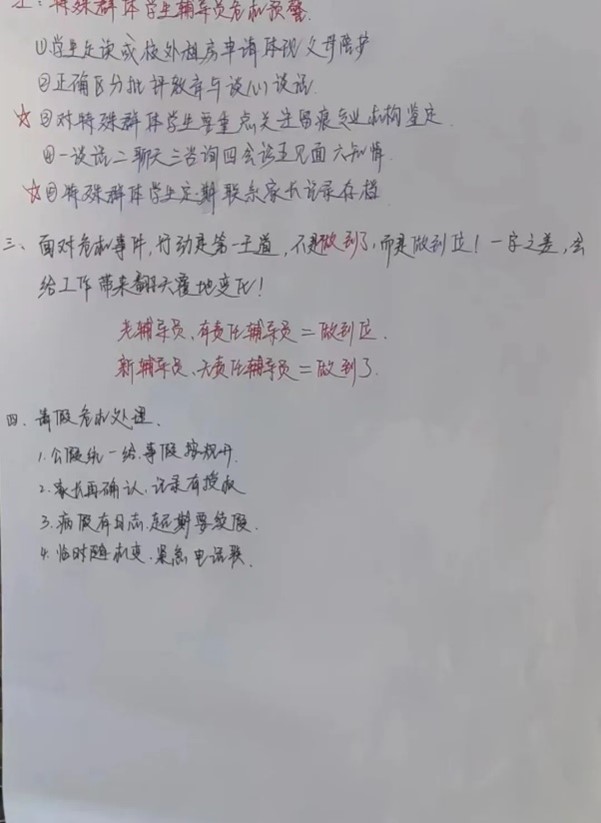 二：特殊群体学生辅导员危机预警.
①学生走读或校外租房申请体现父母陪护
②正确区分批评教育与谈心谈话
☆③对特殊群体学生要重点关注留痕专业机构鉴定.
④一谈话二聊天三咨询四会谈五见面六知情.
☆④特殊群体学生定期联系家长记录存档
三、面对危机事件,行动是第一王道,不是做到了,而是做到位!一字之差,会
给工作带来翻天覆地变化!
老辅导员、有责任辅导员=做到位.
新辅导员、无责任辅导员=做到了.
四、请假危机处理.
1.公假统一给.事假按规开.
2.家长再确认.记录有授权
3.病假有日志.超期要续假.
4.临时随机变.紧急电话联.